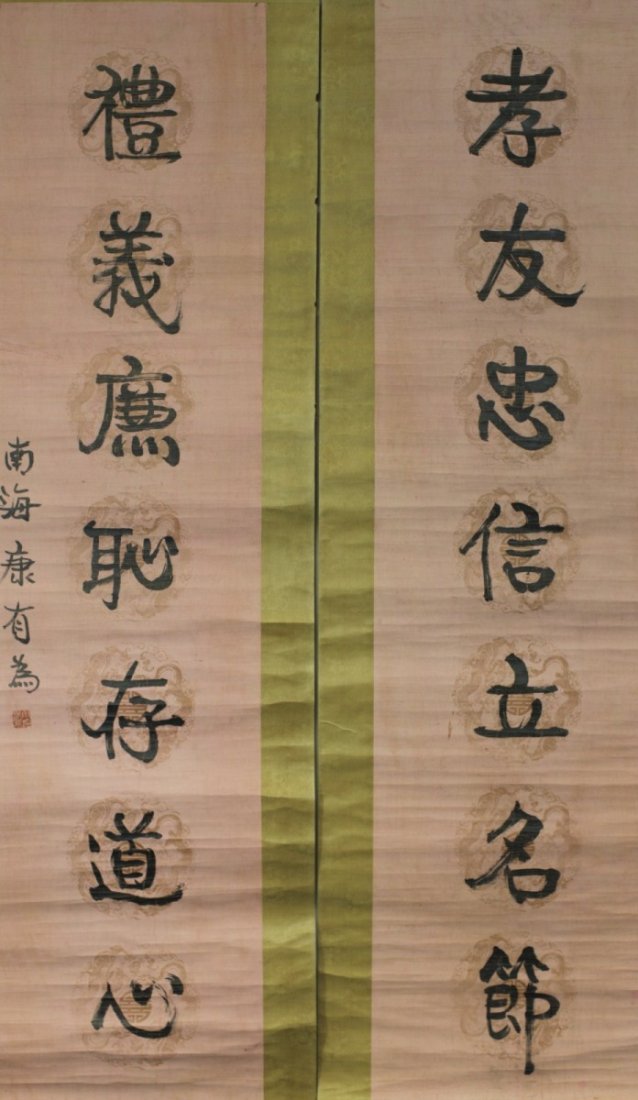 孝友忠信立名節
禮義廉恥存道心
南海康有為